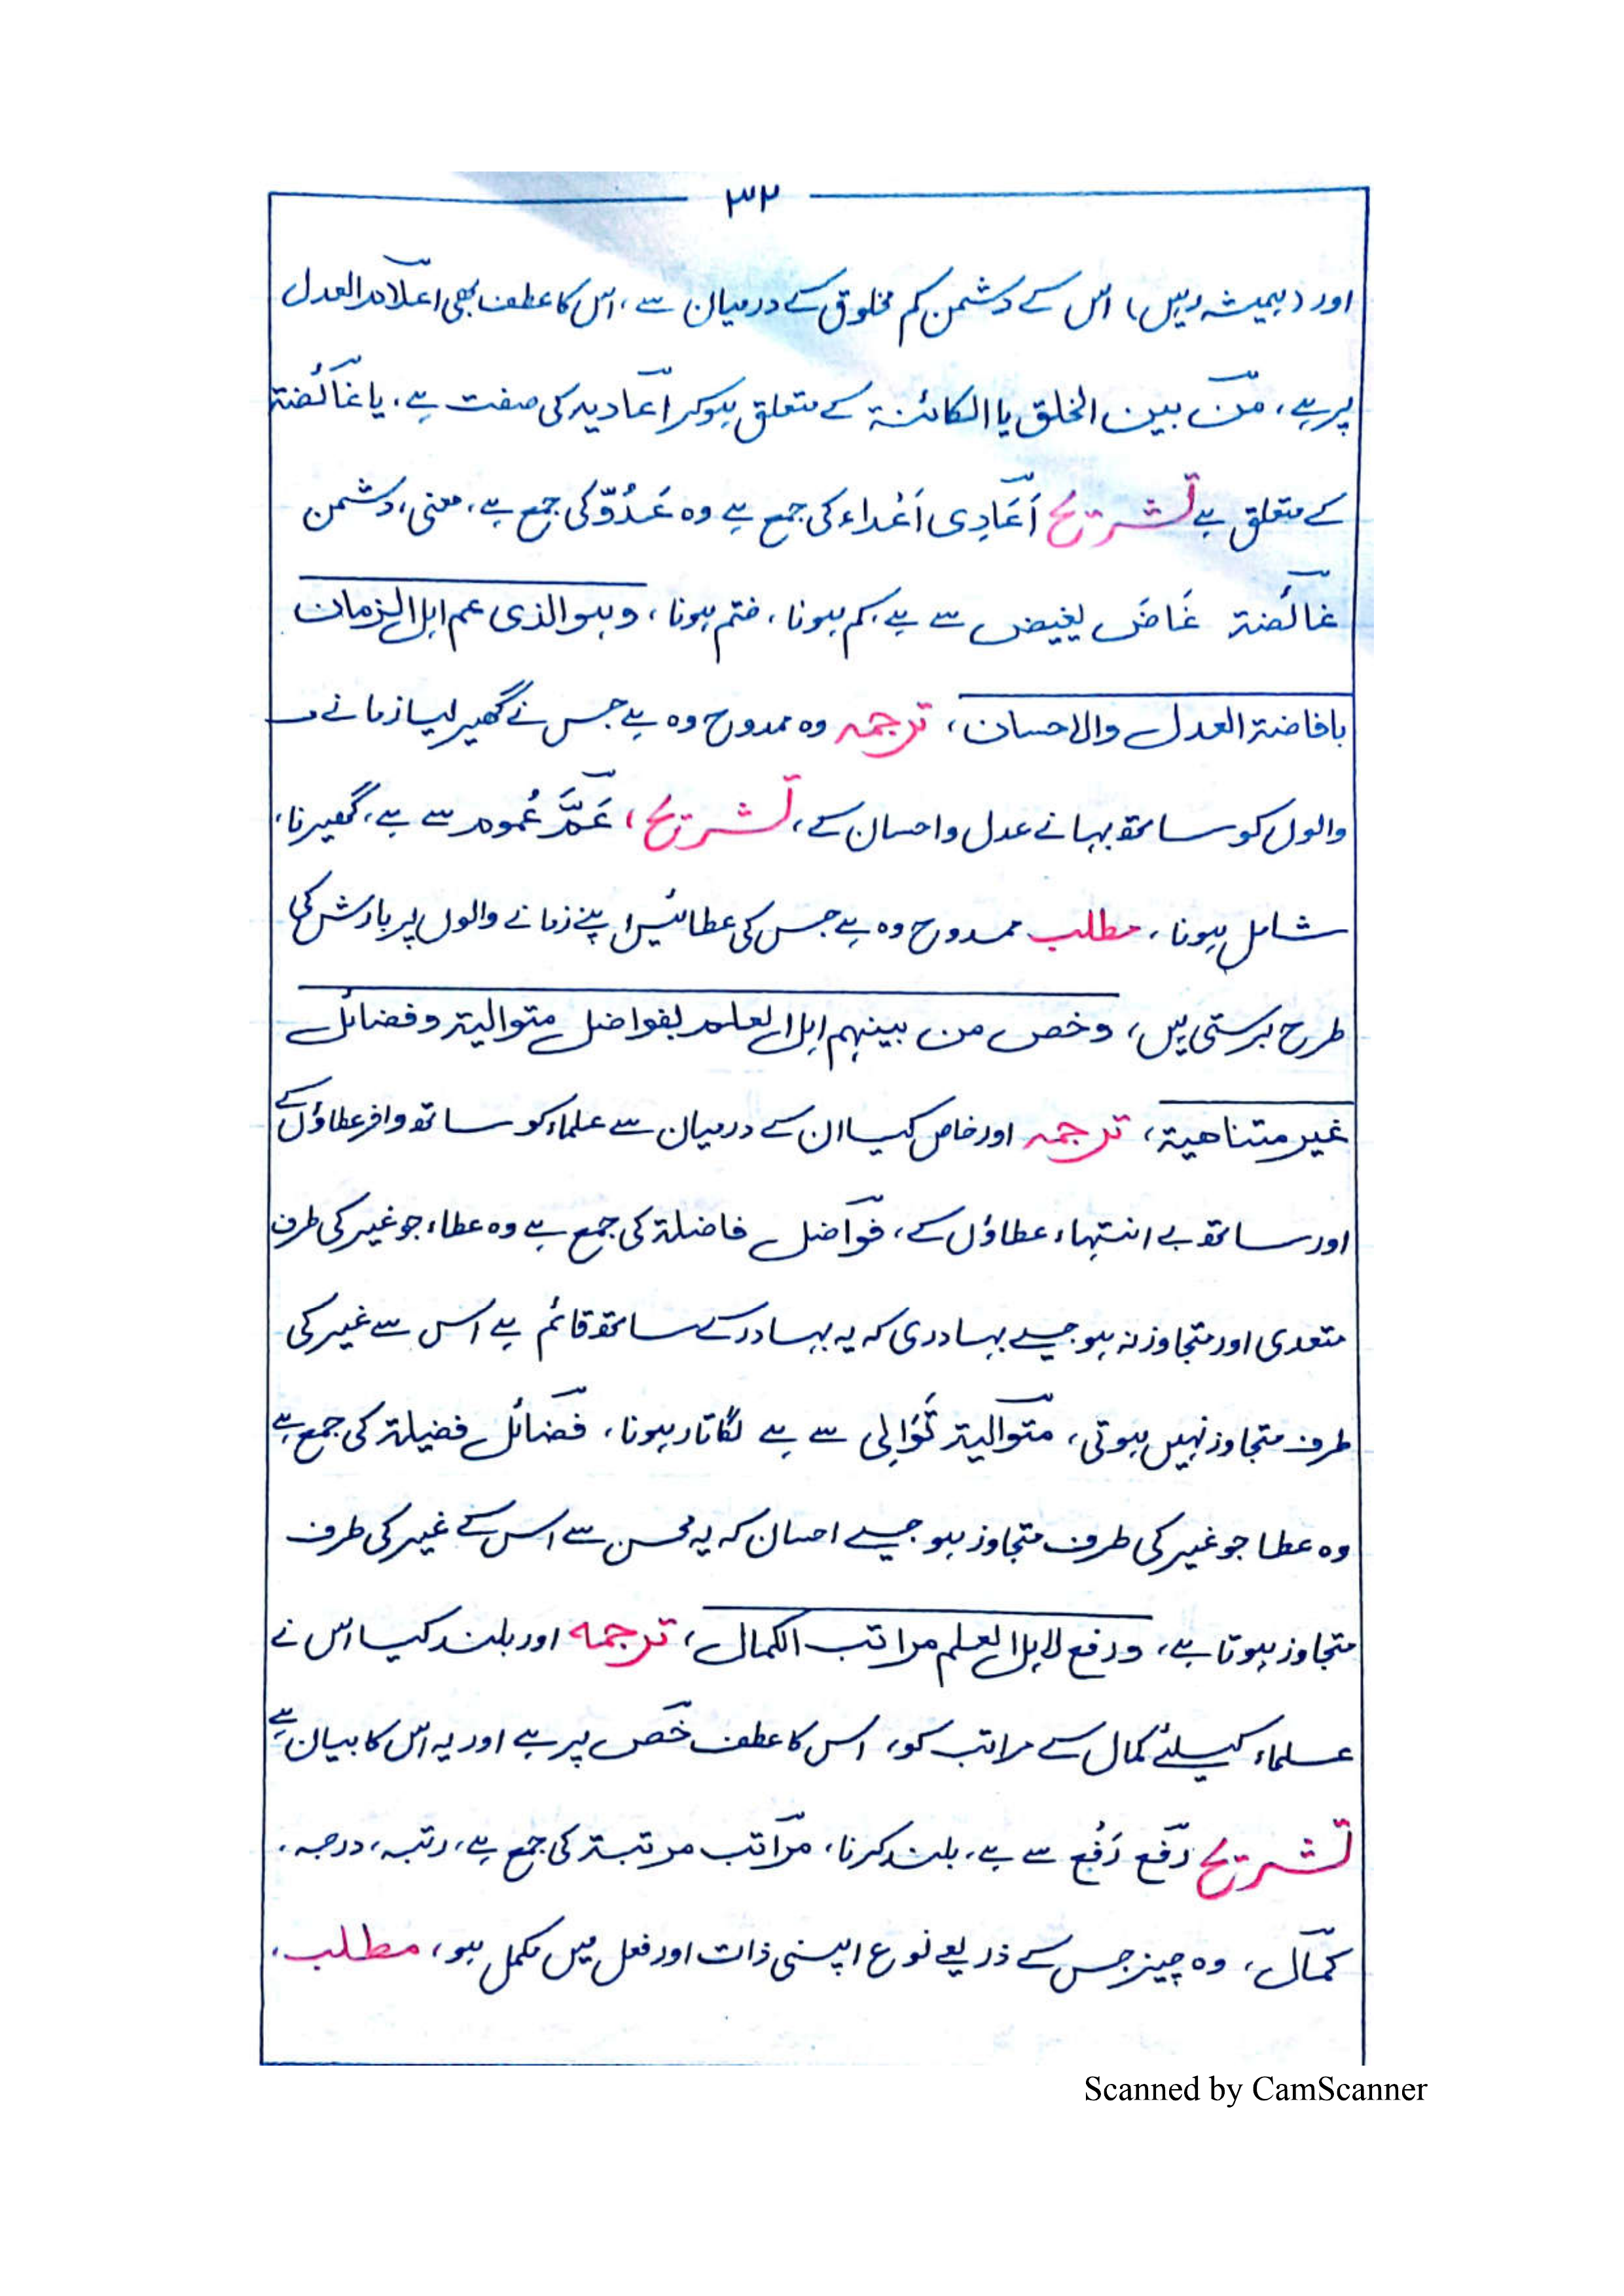 ۳۲
اور (ہمیشہ رہیں) اس کے دشمن کم مخلوق کے درمیان سے، اس کا عطف بھی اعلام العدل
پر ہے، من بین الخلق یا الکائنۃ کے متعلق ہوکر اعادیہ کی صفت ہے، یا غائضۃ
کے متعلق ہے تشریح اَعَادِی اَعْداء کی جمع ہے وہ عَدُوّ کی جمع ہے، معنی، دشمن
غائضۃ غَاضَ یغیض سے ہے، کم ہونا، ختم ہونا، وہو الذی عم اہل الزمان
بافاضۃ العدل والاحسان، ترجمہ وہ ممدوح وہ ہے جس نے گھیر لیا زمانے
والوں کو ساتھ بہانے عدل واحسان کے، تشریح، عَمَّ عُموم سے ہے، گھیرنا،
شامل ہونا، مطلب ممدوح وہ ہے جس کی عطائیں اپنے زمانے والوں پر بارش کی
طرح برستی ہیں، وخص من بینہم اہل العلم بفواضل متوالیۃ وفضائل
غیر متناھیۃ، ترجمہ اور خاص کیا ان کے درمیان سے علماء کو ساتھ وافر عطاؤں کے
اور ساتھ بے انتہاء عطاؤں کے، فواضل فاضلۃ کی جمع ہے وہ عطاء جو غیر کی طرف
متعدی اور متجاوز نہ ہو جیسے بہادری کہ یہ بہادر کے ساتھ قائم ہے اس سے غیر کی
طرف متجاوز نہیں ہوتی، متوالیۃ تَوَالِی سے ہے لگاتار ہونا، فضائل فضیلۃ کی جمع ہے
وہ عطا جو غیر کی طرف متجاوز ہو جیسے احسان کہ یہ محسن سے اس کے غیر کی طرف
متجاوز ہوتا ہے، ورفع لاہل العلم مراتب الکمال، ترجمہ اور بلند کیا اس نے
علماء کیلئے کمال کے مراتب کو، اس کا عطف خص پر ہے اور یہ اس کا بیان ہے
تشریح رفع رَفْع سے ہے، بلند کرنا، مراتب مرتبۃ کی جمع ہے، رتبہ، درجہ،
کمال، وہ چیز جس کے ذریعے نوع اپنی ذات اور فعل میں مکمل ہو، مطلب،
Scanned by CamScanner